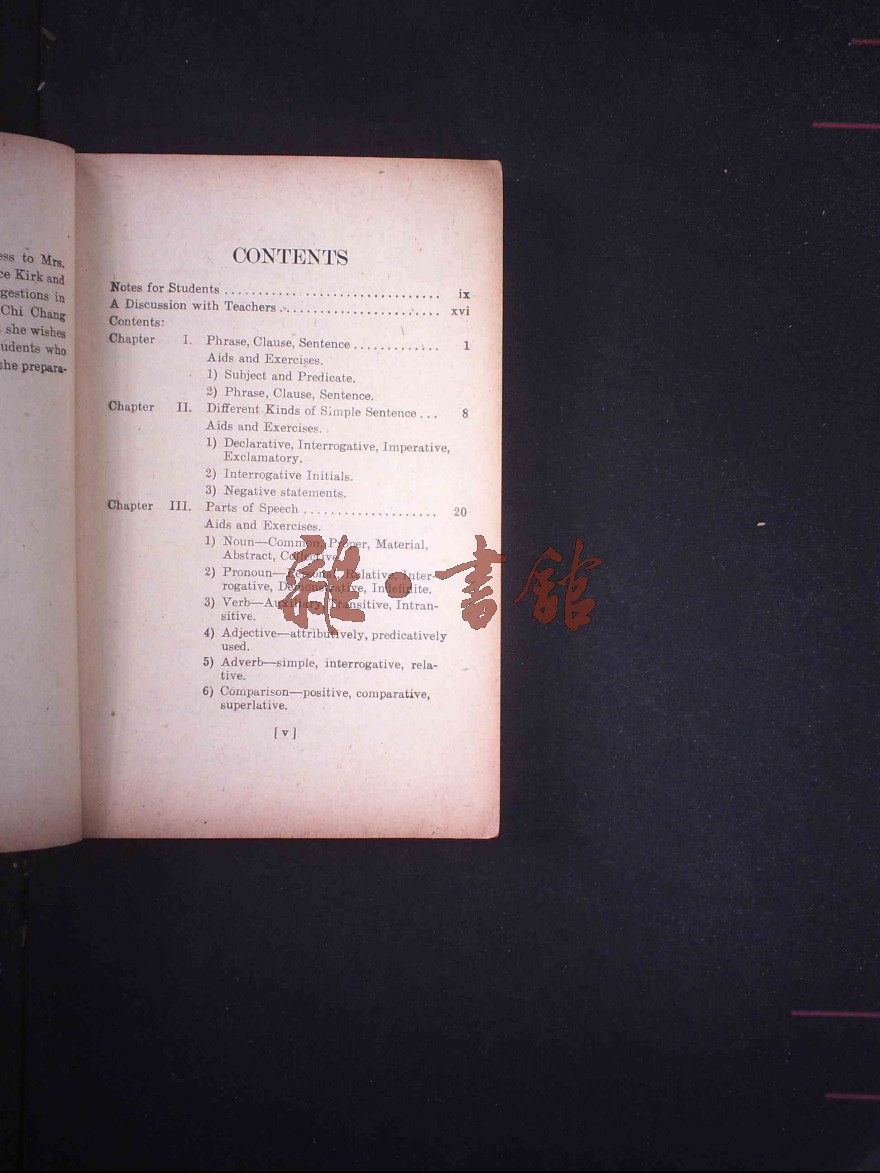 ess to Mrs.
ce Kirk and
gestions in
Chi Chang
she wishes
udents who
the prepara-
CONTENTS
Notes for Students ................................ ix
A Discussion with Teachers ........................ xvi
Contents:
Chapter I. Phrase, Clause, Sentence ............. 1
Aids and Exercises.
1) Subject and Predicate.
2) Phrase, Clause, Sentence.
Chapter II. Different Kinds of Simple Sentence ... 8
Aids and Exercises.
1) Declarative, Interrogative, Imperative,
Exclamatory.
2) Interrogative Initials.
3) Negative statements.
Chapter III. Parts of Speech .................... 20
Aids and Exercises.
1) Noun—Common, Proper, Material,
Abstract, Collective.
2) Pronoun—Personal, Relative, Inter-
rogative, Demonstrative, Indefinite.
3) Verb—Auxiliary, Transitive, Intran-
sitive.
4) Adjective—attributively, predicatively
used.
5) Adverb—simple, interrogative, rela-
tive.
6) Comparison—positive, comparative,
superlative.
[ v ]
雜·書館